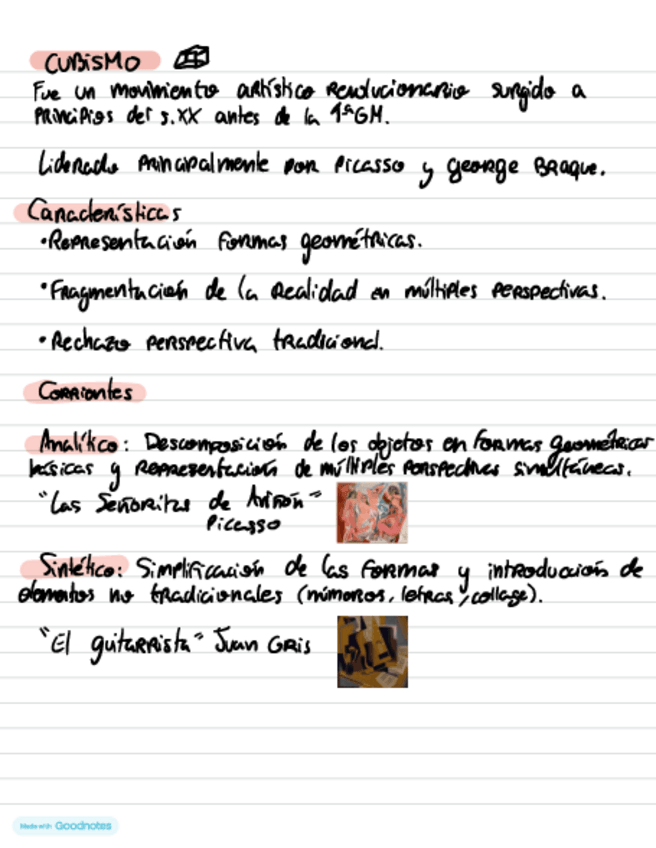 CUBISMO
Fue un movimiento artístico revolucionario surgido a
principios del s.XX antes de la 1ªGM.
Liderado principalmente por Picasso y george Braque.
Características
•Representación formas geométricas.
•Fragmentación de la realidad en múltiples perspectivas.
•Rechazo perspectiva tradicional.
Corrientes
Analítico: Descomposición de los objetos en formas geométricas
básicas y representación de múltiples perspectivas simultáneas.
"Las Señoritas de Aviñón"
Picasso
Sintético: Simplificación de las formas y introducción de
elementos no tradicionales (números, letras, collage).
"El guitarrista" Juan Gris
Made with Goodnotes